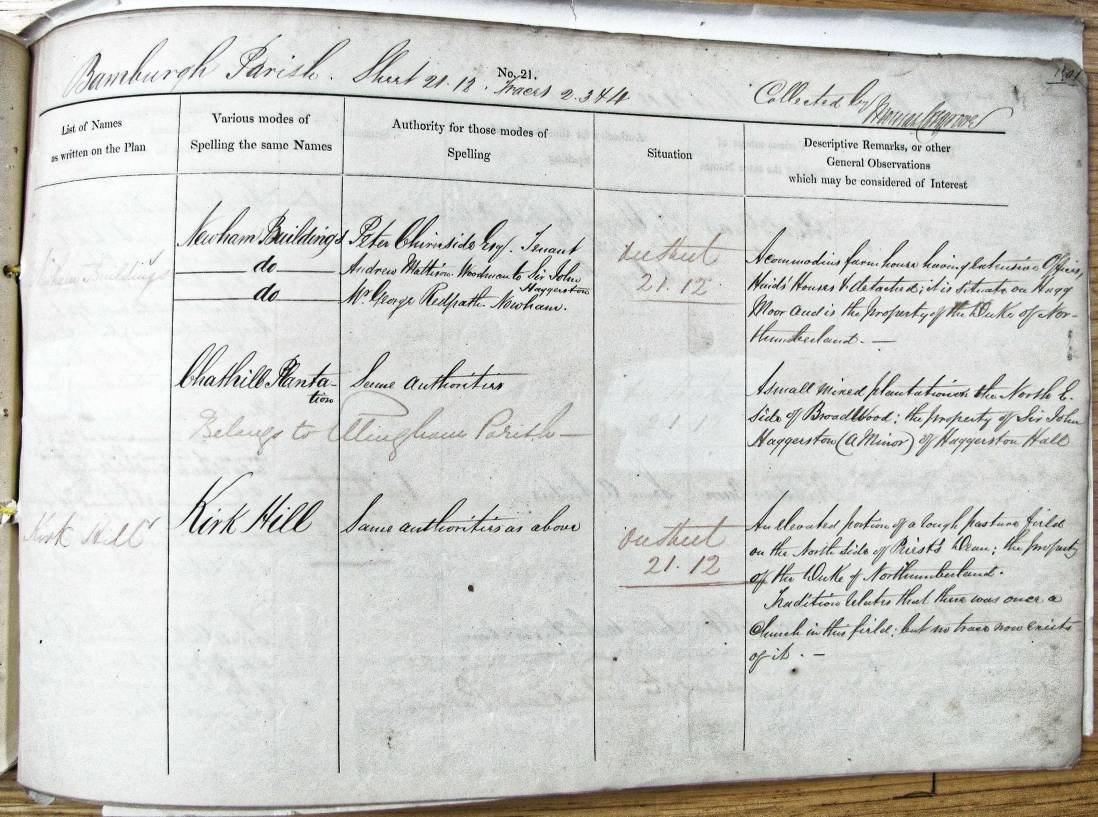 Bamburgh Parish. Sheet 21.12. No. 21. Traces 2.3 & 4
Collected by Thomas Cosgrove
List of Names
as written on the Plan
Various modes of
Spelling the same Names
Authority for those modes of
Spelling
Situation
Descriptive Remarks, or other
General Observations
which may be considered of Interest
Newham Buildings
Newham Buildings
do
do
Peter Chirnside Esq. Tenant
Andrew Mathison Woodman to Sir John
Haggerston
Mr. George Redpath. Newham.
On Sheet
21.12
A commodius farm house having extensive Offices,
Hind's Houses &c detached; it is situate on Hagg
Moor and is the property of the Duke of Nor-
thumberland. —
Chathill Planta-
tion
Same authorities
A small mixed plantation on the North E.
side of Broad Wood: the property of Sir John
Haggerston (a Minor) of Haggerston Hall
Belongs to Ellingham Parish —
Kirk Hill
Kirk Hill
Same authorities as above
On Sheet
21.12
An elevated portion of a rough pasture field
on the North side of Priest's Dean; the property
of the Duke of Northumberland.
Tradition relates that there was once a
Church in this field: but no trace now exists
of it. —